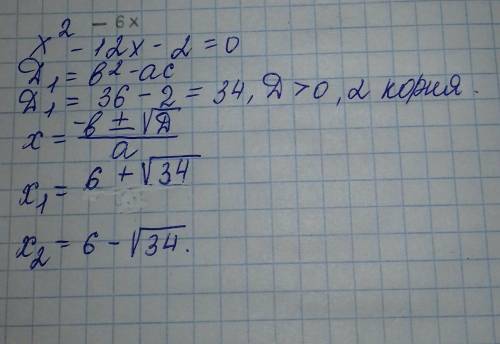 − 6x
x² − 12x − 2 = 0
Д₁ = в² − ac
Д₁ = 36 − 2 = 34, Д > 0, 2 корня.
x = (−в ± √Д) / a
x₁ = 6 + √34
x₂ = 6 − √34.